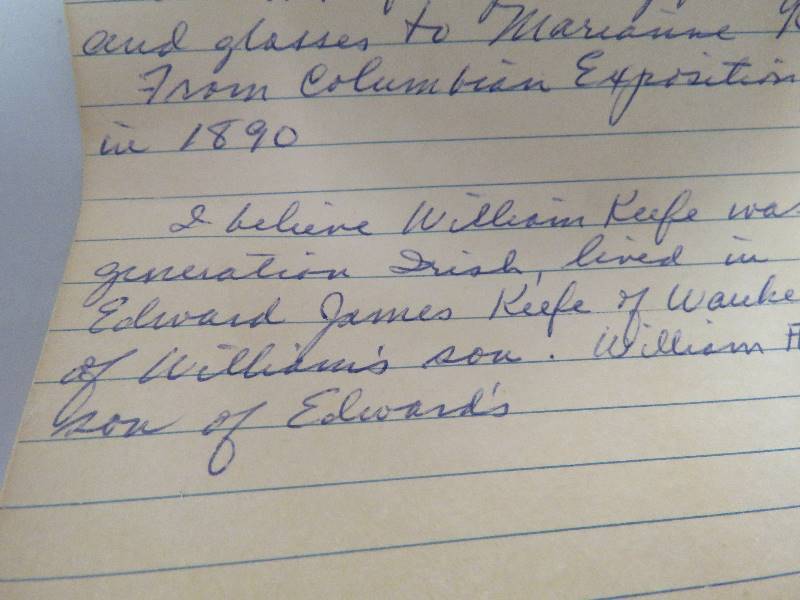 and glasses to Marianne
From Columbian Exposition
in 1890
I believe William Keefe was
generation Irish, lived in
Edward James Keefe of Wauke
of William's son. William
son of Edward's